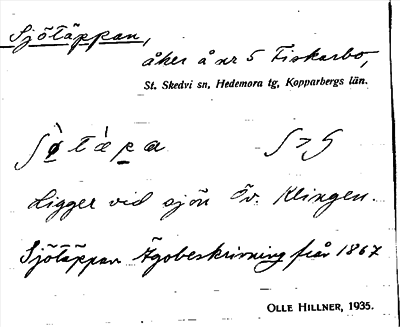 Sjötäppan,
åker å nr 5 Fiskarbo,
St. Skedvi sn, Hedemora tg, Kopparbergs län.
ʃø̀tæ̀pa ʃ > ʃ
Ligger vid sjön Öv. Klingen.
Sjötäppan Ägobeskrivning från 1867
OLLE HILLNER, 1935.